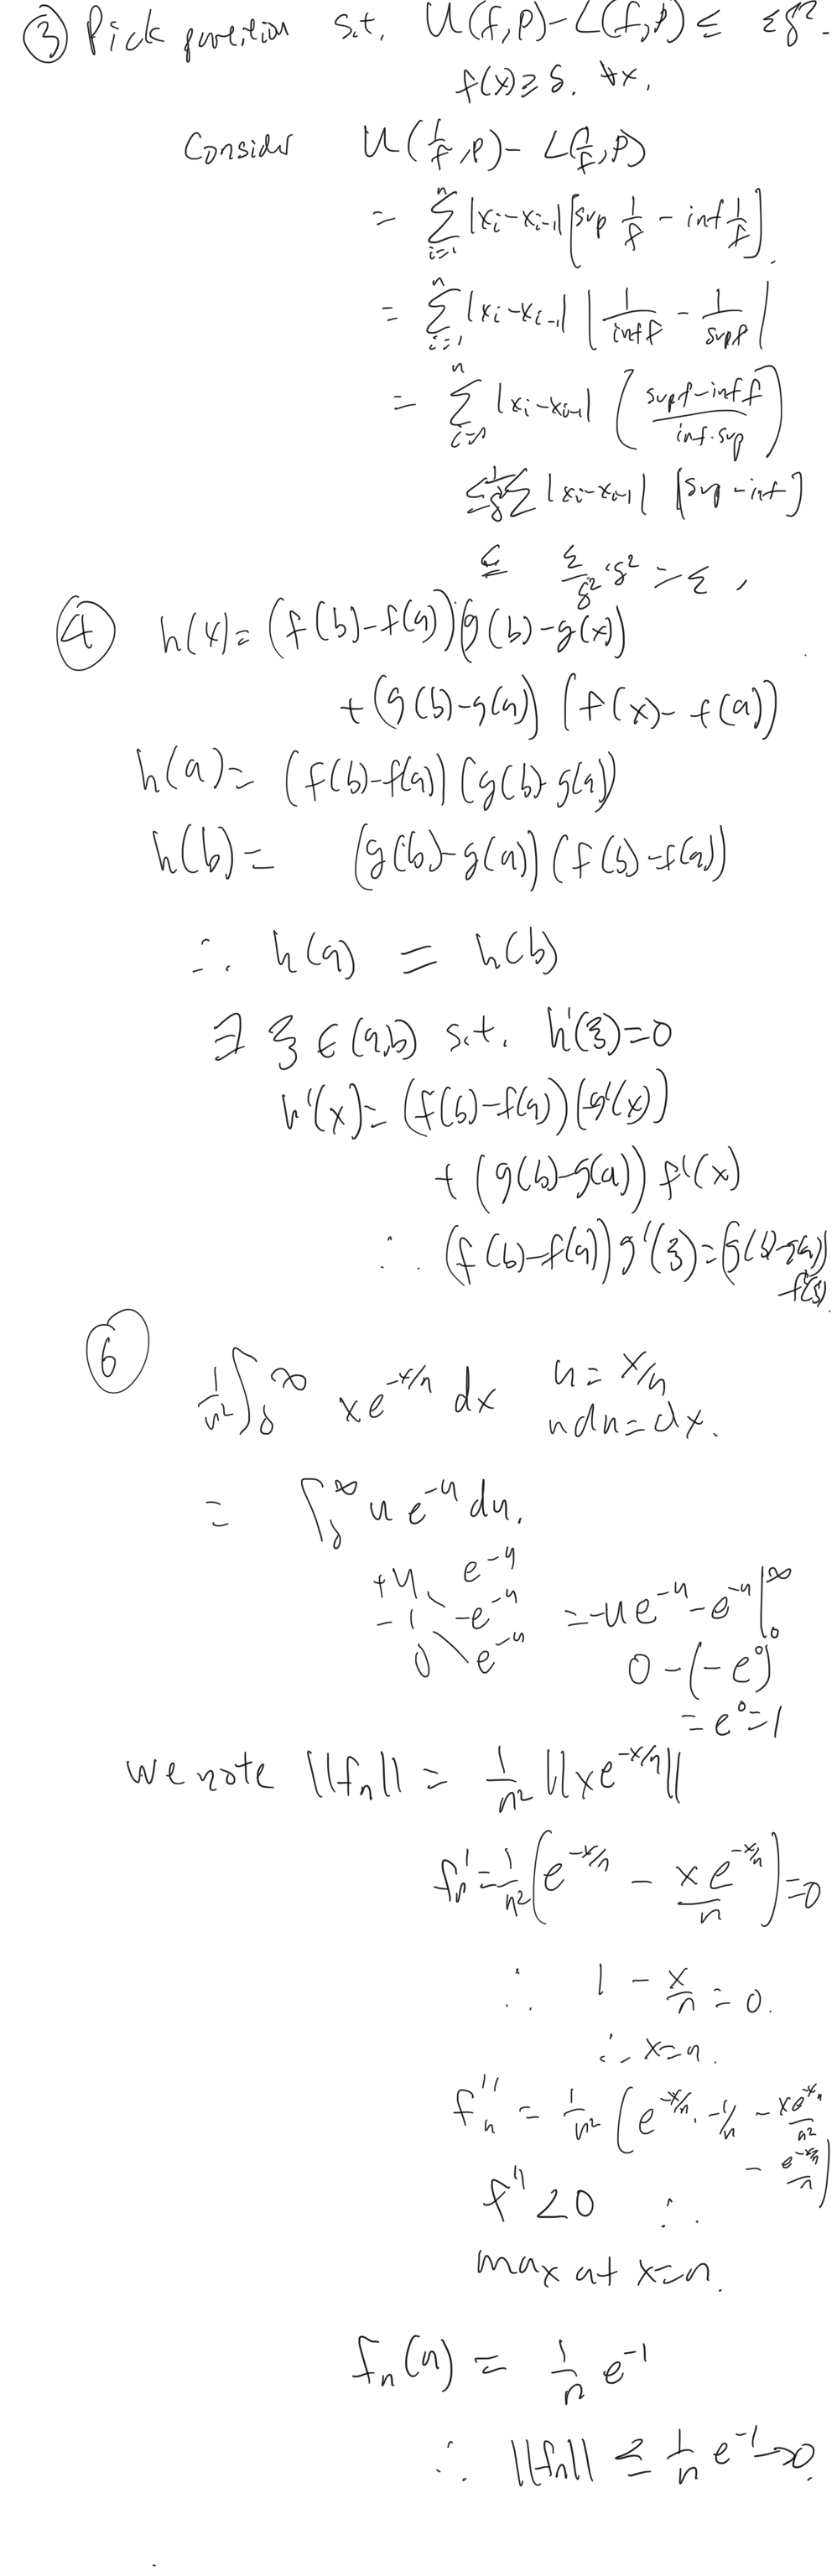 ③ Pick partition s.t. U(f,P)-L(f,P) ≤ εδ².
f(x) ≥ δ. ∀x.
Consider U(1/f,P) - L(1/f,P)
= Σ_{i=1}^{n} |x_i-x_{i-1}| [sup 1/f - inf 1/f].
= Σ_{i=1}^{n} |x_i-x_{i-1}| |1/inf f - 1/sup f|
= Σ_{i=1}^{n} |x_i-x_{i-1}| (sup f-inf f / inf·sup)
≤ 1/δ² Σ |x_i-x_{i-1}| [sup-inf]
≤ ε/δ² · δ² = ε,
④ h(x) = (f(b)-f(a))(g(b)-g(x))
+ (g(b)-g(a)) (f(x)-f(a))
h(a) = (f(b)-f(a)) (g(b)-g(a))
h(b) = (g(b)-g(a)) (f(b)-f(a))
∴ h(a) = h(b)
∃ ξ ∈ (a,b) s.t. h'(ξ)=0
h'(x) = (f(b)-f(a))(-g'(x))
+ (g(b)-g(a)) f'(x)
∴ (f(b)-f(a)) g'(ξ) = (g(b)-g(a))
f'(ξ).
⑥
1/n² ∫_0^∞ x e^{-x/n} dx u = x/n
n du = dx.
= ∫_0^∞ u e^{-u} du.
+u e^{-u}
-1 -e^{-u} = -u e^{-u} - e^{-u} |_0^∞
0 e^{-u} 0 - (-e^0)
= e^0 = 1
we note ||f_n|| = 1/n² ||x e^{-x/n}||
f_n' = 1/n² (e^{-x/n} - x e^{-x/n}/n) = 0
∴ 1 - x/n = 0.
∴ x = n.
f_n'' = 1/n² (e^{-x/n} · -1/n - x e^{-x/n}/n²
- e^{-x/n}/n)
f'' < 0 ∴
max at x = n.
f_n(n) = 1/n e^{-1}
∴ ||f_n|| ≤ 1/n e^{-1} → 0.